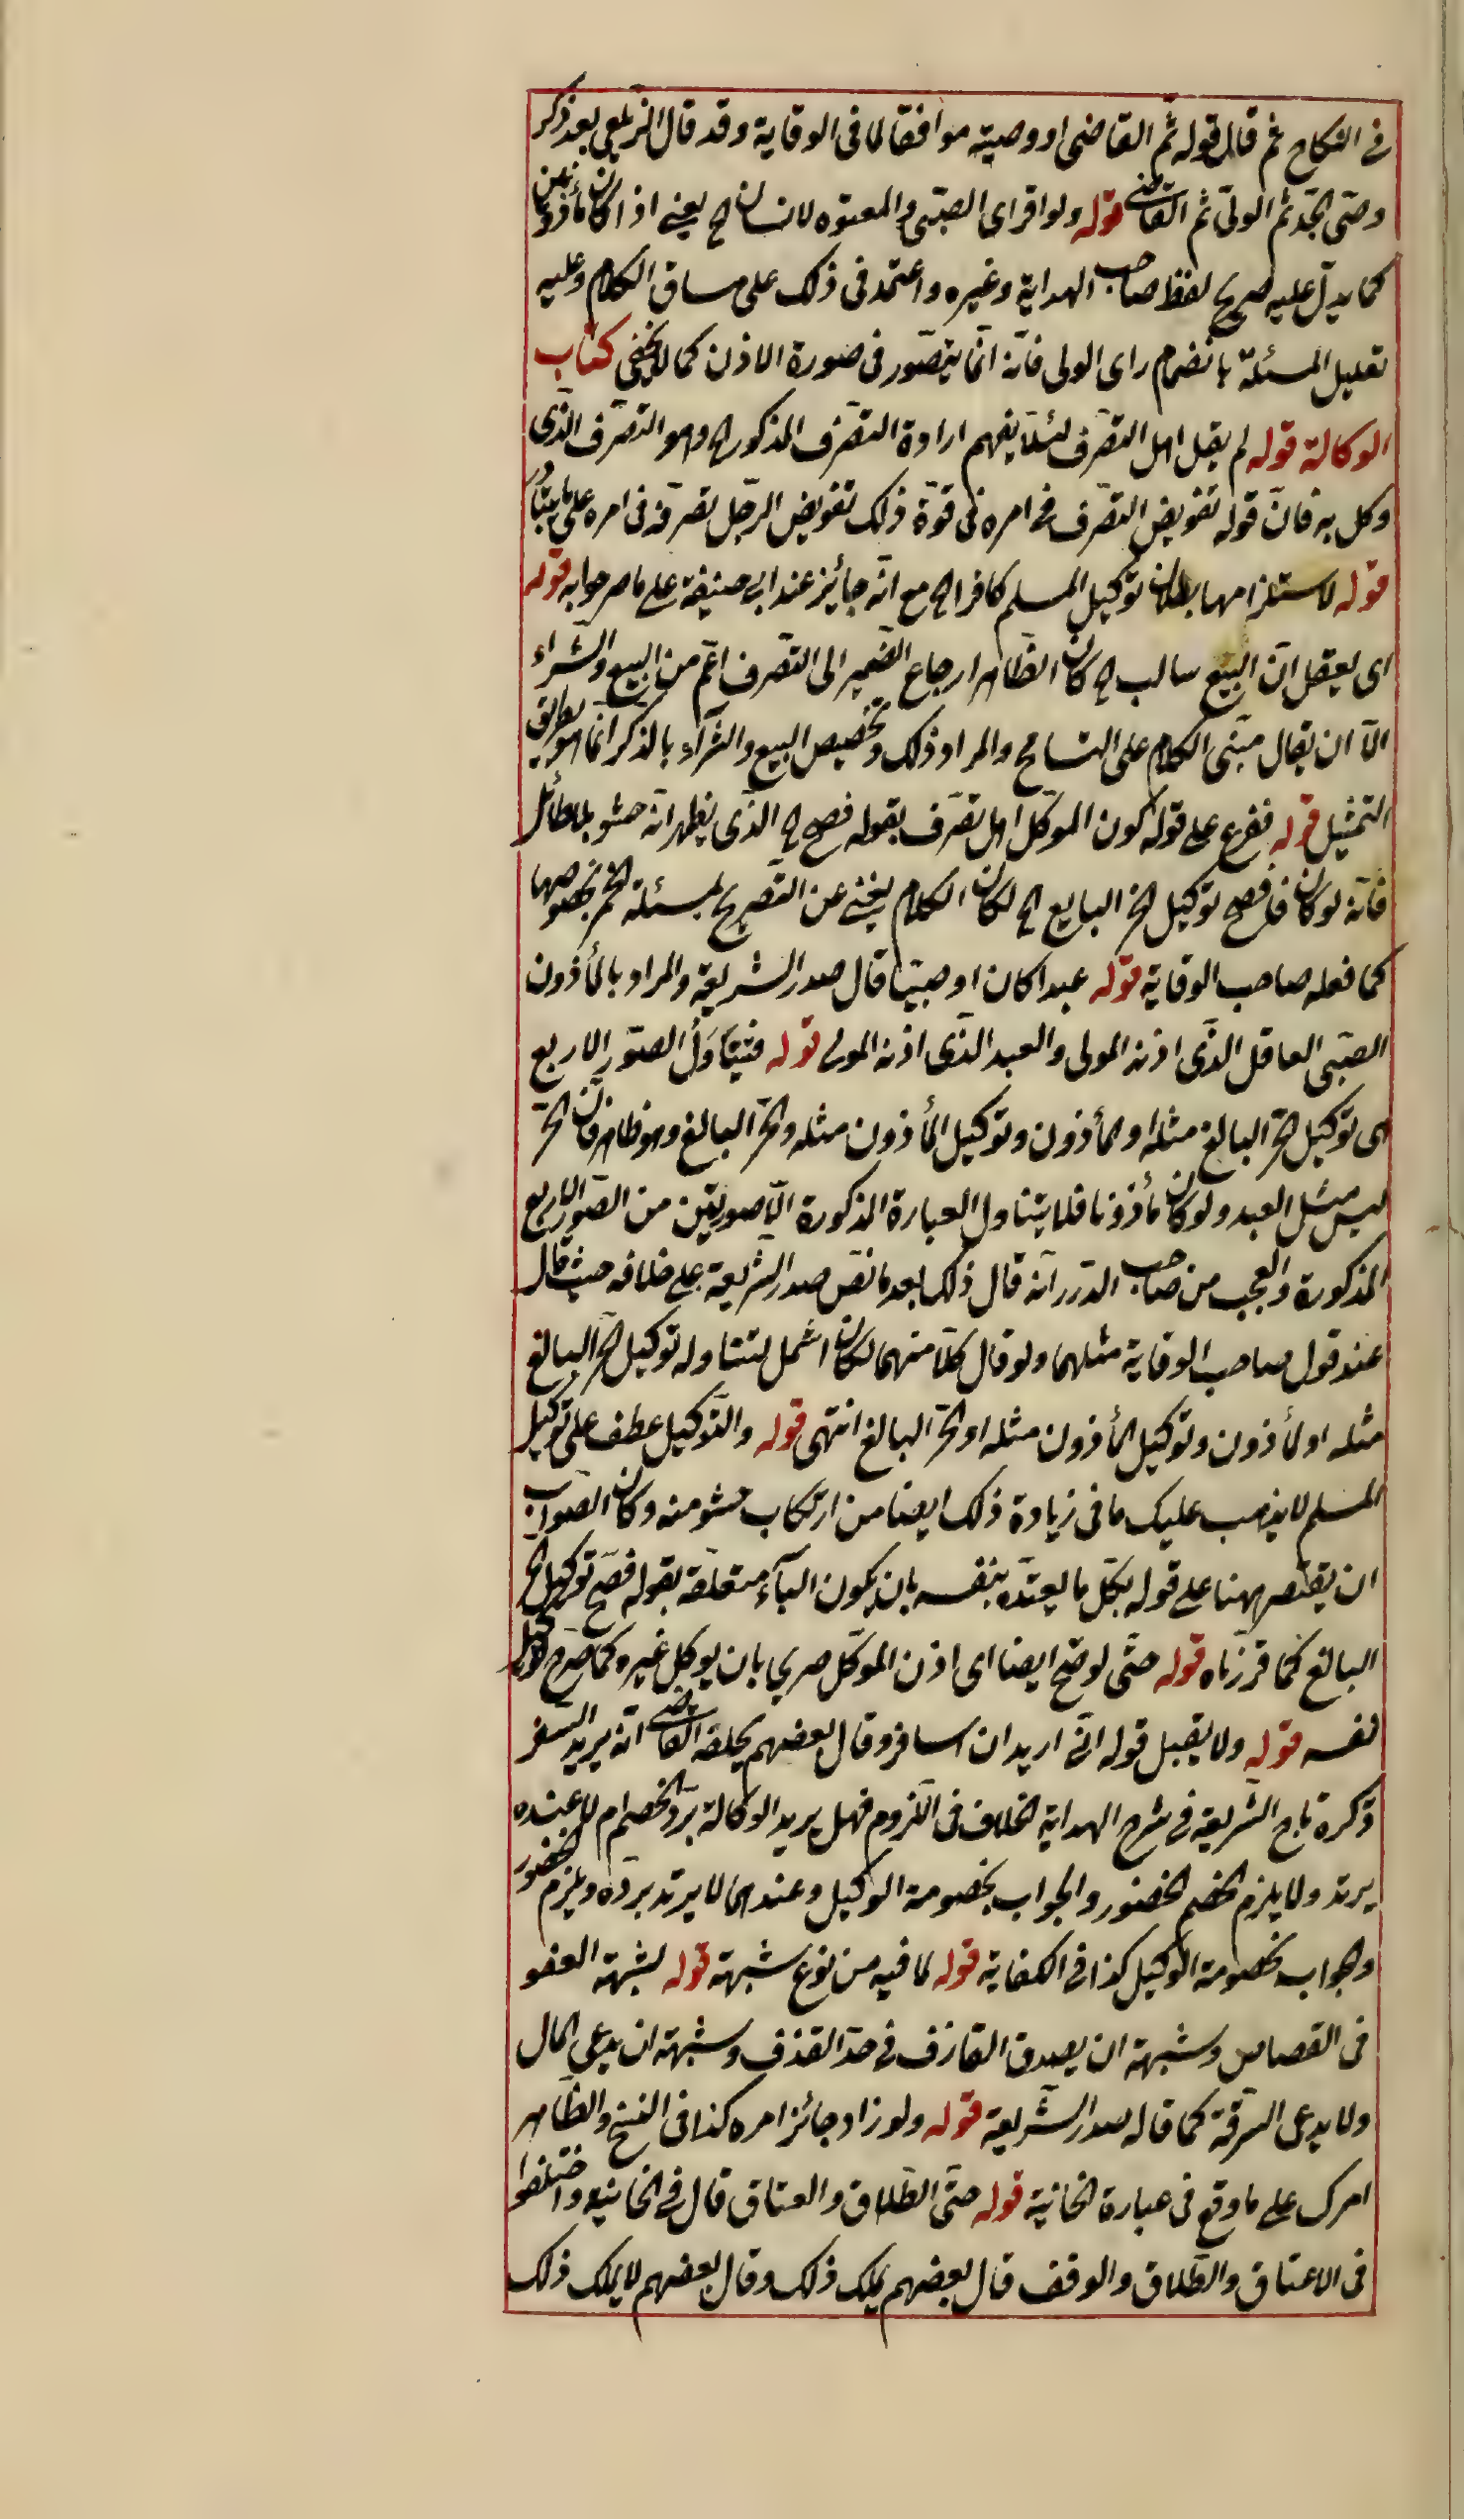 في النكاح ثم قال قوله ثم القاضي او وصيته موافقا لما في الوقاية وقد قال الزيلعي بعد ذكر
وصي الجد ثم الولي ثم القاضي قوله ولو اقر اي الصبي والمعتوه لانسان الخ يعني اذا كان مأذونين
كما يدل عليه صريح لفظ صاحب الهداية وغيره واعتمد في ذلك على مساق الكلام وعليه
تعليل المسئلة بانضمام راي الولي فانه انما يتصور في صورة الاذن كما لا يخفى كتاب
الوكالة قوله لم يقل اهل التصرف لئلا يفهم ارادة التصرف المذكور الخ وهو التصرف الذي
وكل به فان قوله تفويض التصرف في امره في قوة ذلك تفويض الرجل تصرفه في امره على ما يتبادر
قوله لاستلزامها بطلان توكيل المسلم كافرا الخ مع انه جائز عند ابي حنيفة على ما صرحوا به قوله
اي يعقل ان البيع سالب الخ كان الظاهر ارجاع الضمير الى التصرف اعم من البيع والشراء
الا ان يقال مبنى الكلام على التسامح والمراد ذلك وتخصيص البيع والشراء بالذكر انما هو بطريق
التمثيل قوله ففرع على قوله كون الموكل اهل تصرف بقوله فصح الخ الذي يظهر انه حشو بلا طائل
فانه لو كان قال فصح توكيل الحر البايع الخ لكان الكلام يغني عن التصريح لمسئلة الخمر بخصوصها
كما فعله صاحب الوقاية قوله عبدا كان او صبيا قال صدر الشريعة والمراد بالمأذون
الصبي العاقل الذي اذنه المولى والعبد الذي اذنه المولى قوله فيتناول الصور الاربع
اي توكيل الحر البالغ مثله او المأذون وتوكيل المأذون مثله والحر البالغ وهو ظاهر فان الحر
ليس مثل العبد ولو كان مأذونا فلا يتناول العبارة المذكورة الا صورتين من الصور الاربع
المذكورة والعجب من صاحب الدرر انه قال ذلك بعد ما نص صدر الشريعة على خلافه حيث قال
عند قول صاحب الوقاية مثلهما ولو قال كلا منهما لكان اشمل لتناوله توكيل الحر البالغ
مثله او المأذون وتوكيل المأذون مثله او الحر البالغ انتهى قوله والتوكيل عطف على توكيل
المسلم لا يذهب عليك ما في زيادة ذلك ايضا من ارتكاب حشو منه وكان الصواب
ان يقتصر ههنا على قوله بكل ما يعتقده بنفسه بان يكون الباء متعلقة بقوله فصح توكيل الحر
البالغ كما قررناه قوله حتى لو صح ايضا اي اذن الموكل صريحا بان يوكل غيره كما صرح توكيل
نفسه قوله ولا يقبل قوله اني اريد ان اسافر وقال بعضهم يحلفه القاضي انه يريد السفر
ذكره تاج الشريعة في شرح الهداية الخلاف في اللزوم فهل يريد الوكالة برد الخصم ام لا عنده
يرتد ولا يلزم الخصم الحضور والجواب بخصومة الوكيل وعندهما لا يرتد برده ويلزم الحضور
وجواب بخصومة الوكيل كذا في الكفاية قوله لما فيه من نوع شبهة قوله لشبهة العفو
في القصاص وشبهة ان يصدق القاذف في حد القذف وشبهة ان يدعي المال
ولا يدعي السرقة كما قاله صدر الشريعة قوله ولو زاد جائز امره كذا في النسخ والظاهر
امرك على ما وقع في عبارة الخانية قوله حتى الطلاق والعتاق قال في الخانية واختلفوا
في الاعتاق والطلاق والوقف قال بعضهم يملك ذلك وقال بعضهم لا يملك ذلك